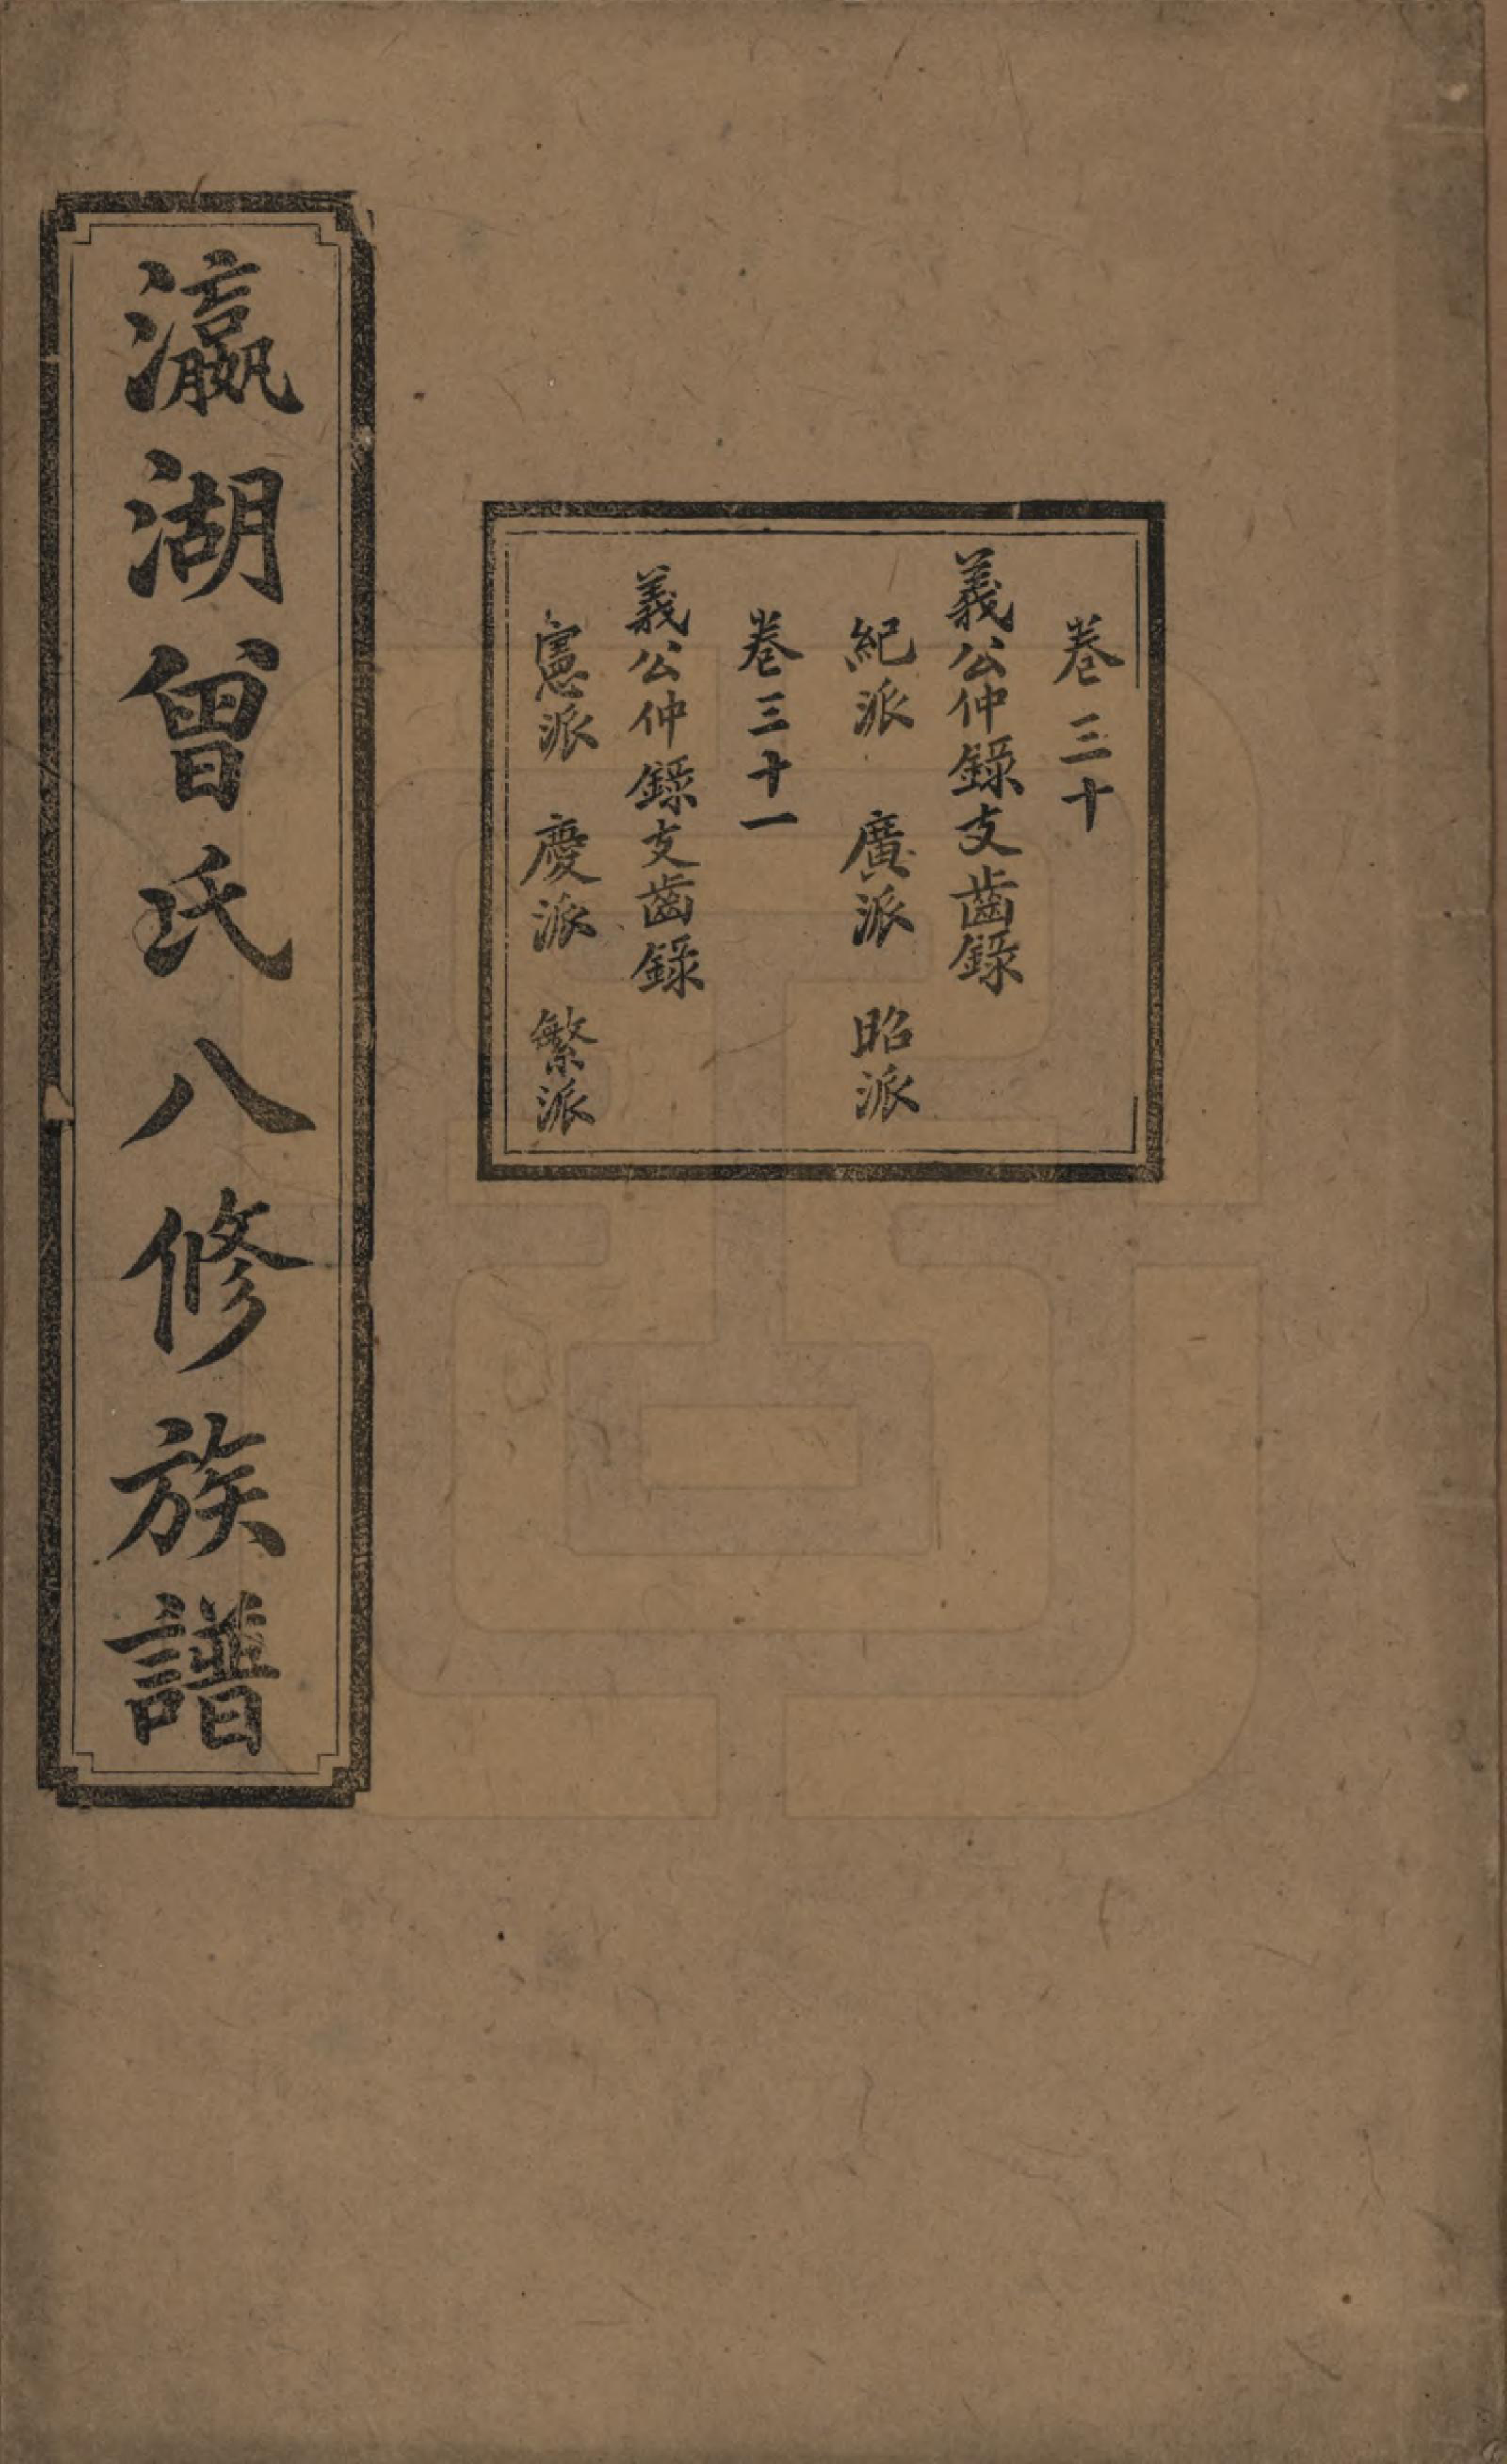 卷三十
義公仲錄支齒錄
紀派　廣派　昭派
卷三十一
義公仲錄支齒錄
憲派　慶派　繁派
瀛湖曾氏八修族譜